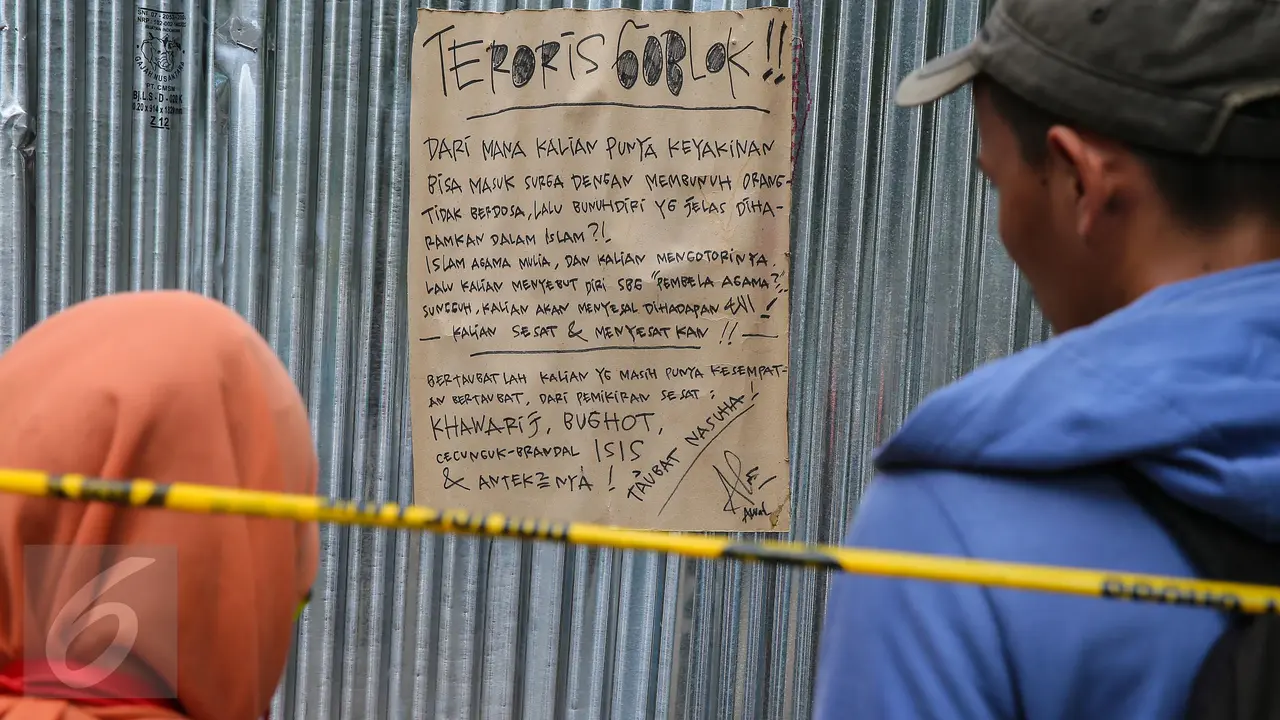 SNI 07-205
GAJAH NUSANTARA
PT. CMSN
0.20 x 914 x 1829
Z 12
TERORIS GOBLOK !!
DARI MANA KALIAN PUNYA KEYAKINAN
BISA MASUK SURGA DENGAN MEMBUNUH ORANG-
TIDAK BERDOSA, LALU BUNUHDIRI YG JELAS DIHA-
RAMKAN DALAM ISLAM?!.
ISLAM AGAMA MULIA, DAN KALIAN MENGOTORINYA.
LALU KALIAN MENYEBUT DIRI SBG "PEMBELA AGAMA?"
SUNGGUH, KALIAN AKAN MENYESAL DIHADAPAN !
— KALIAN SESAT & MENYESATKAN !! —
BERTAUBATLAH KALIAN YG MASIH PUNYA KESEMPAT-
AN BERTAUBAT, DARI PEMIKIRAN SESAT :
KHAWARIJ, BUGHOT,
CECUNGUK-BRANDAL ISIS
& ANTEK2NYA !
TAUBAT NASUHA !
6